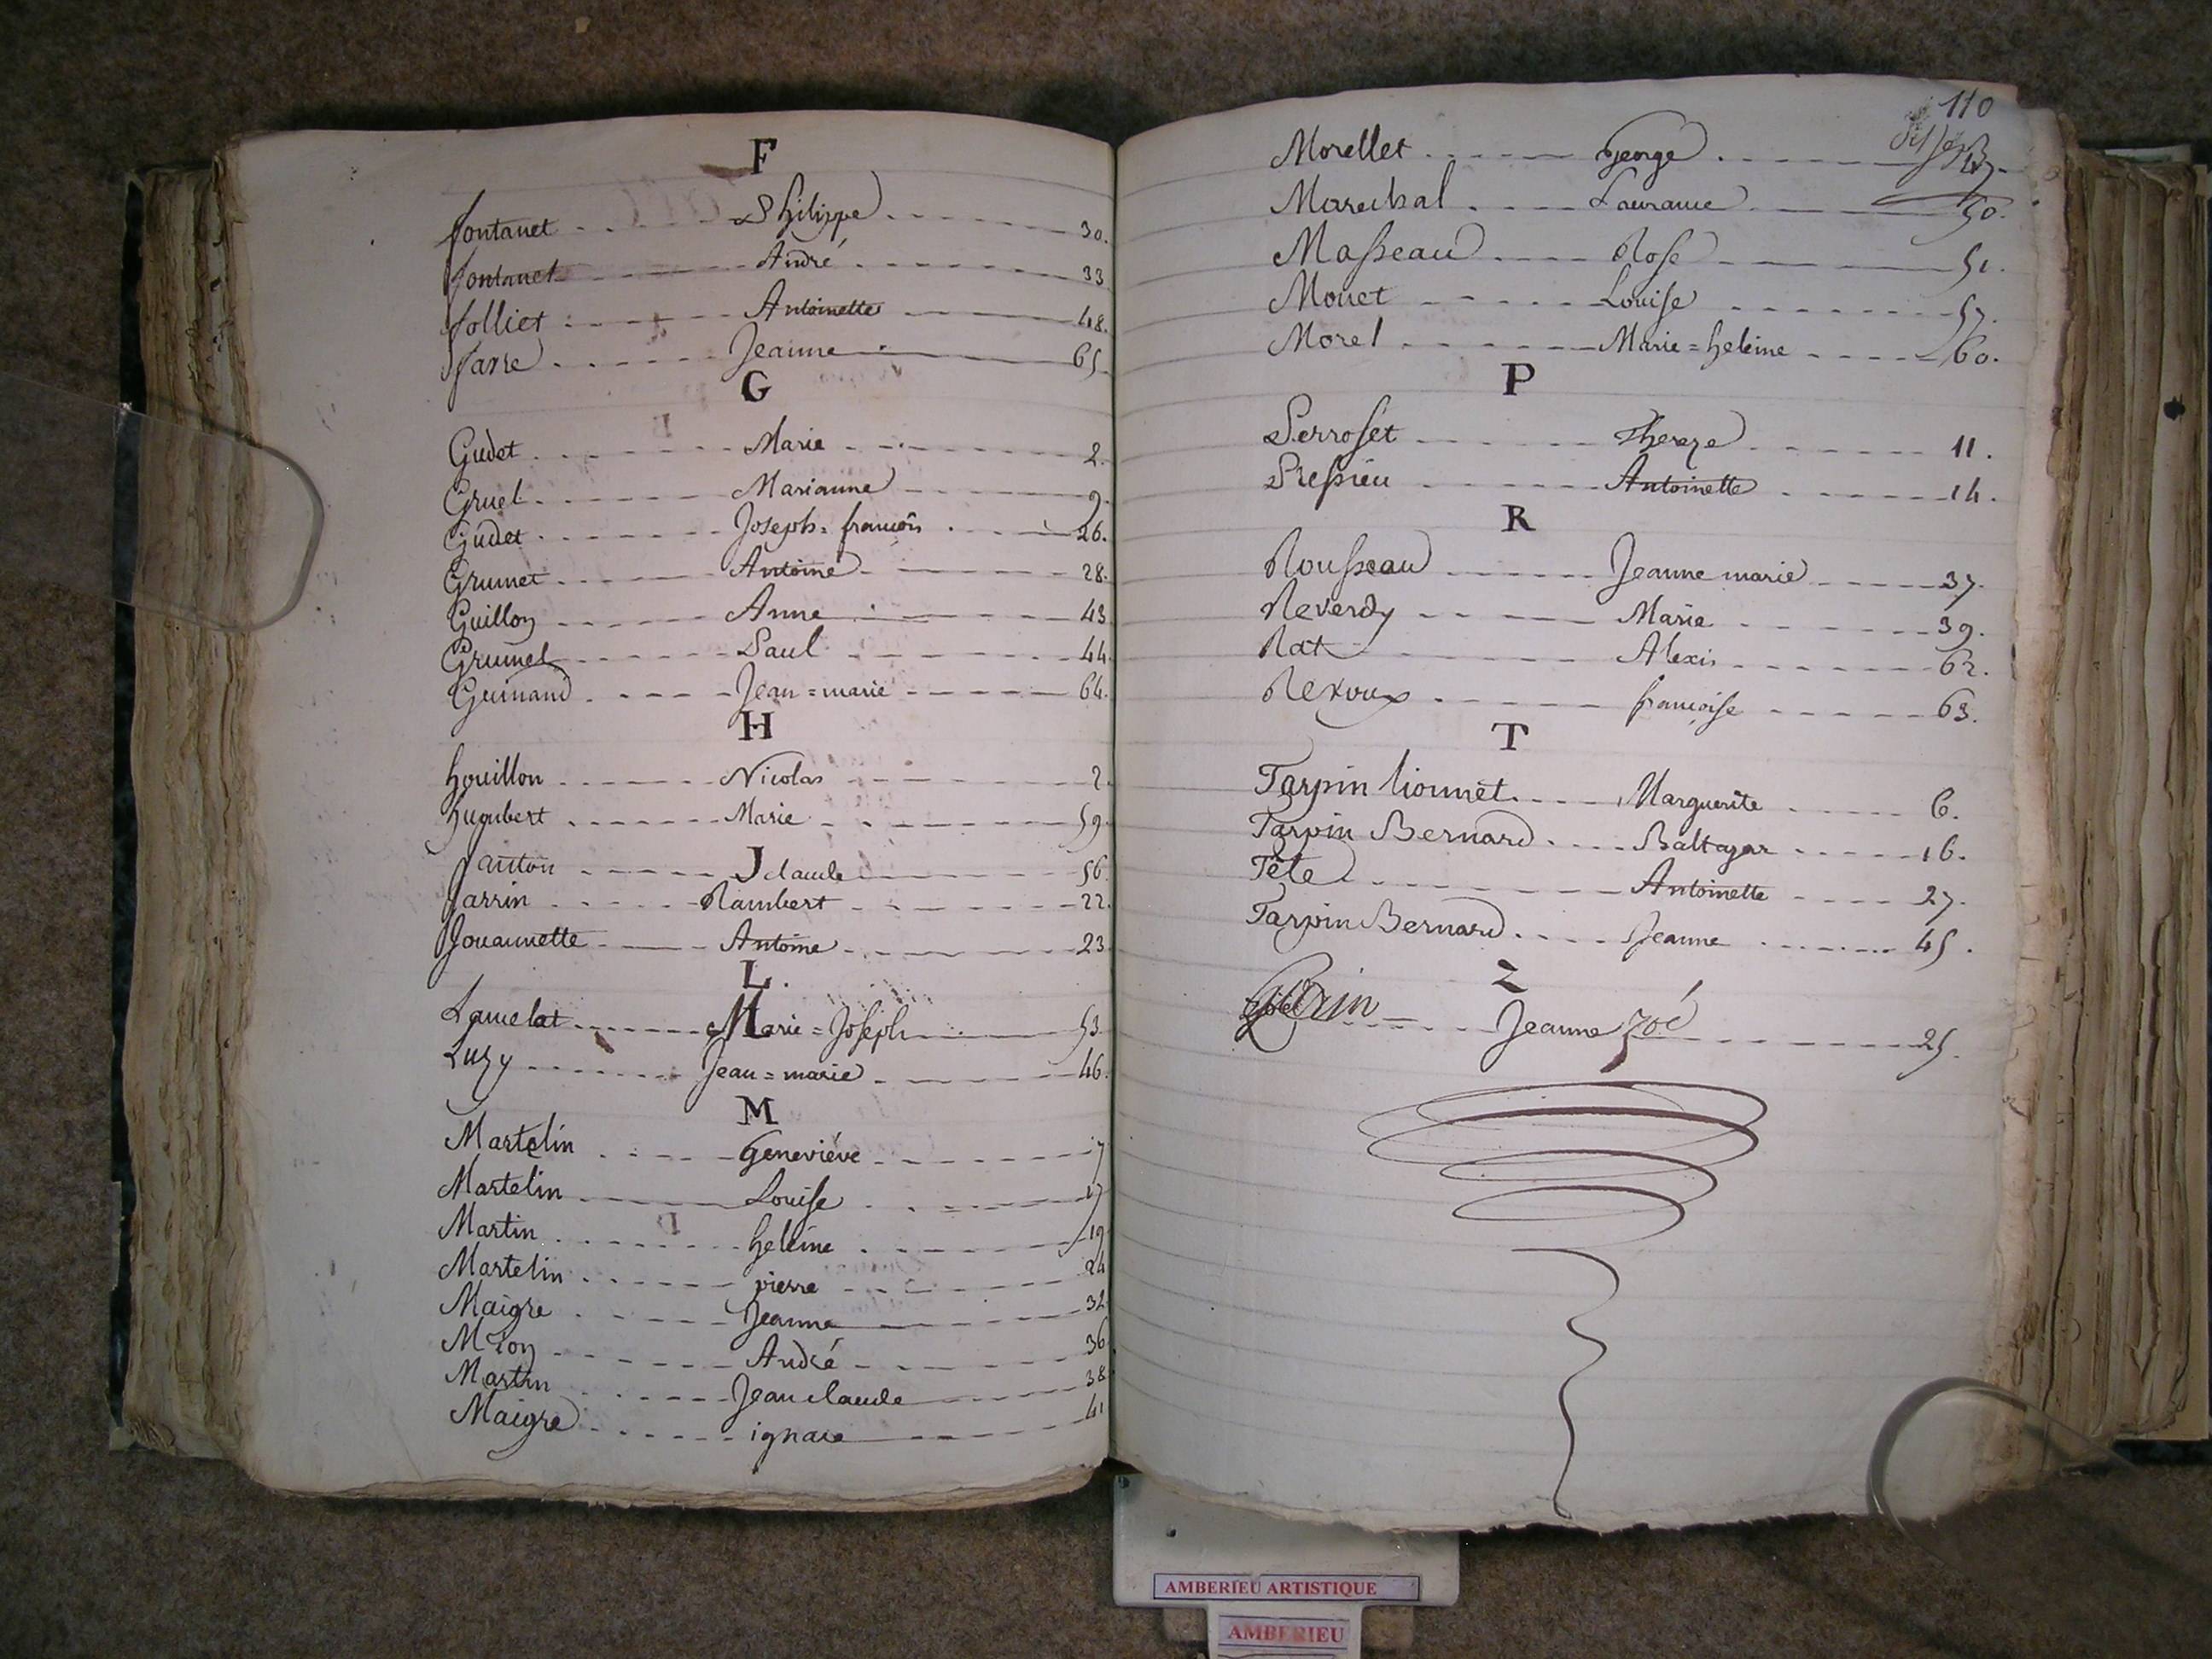 F
fontanet Philippe 30.
fontanet André 33
folliet Antoinette 48.
favre Jeanne 65
G
Gudet Marie 2.
Gruel Marianne 9.
Gudet Joseph=françois 26.
Grumet Antoine 28.
Guillon Anne 43
Grumet Paul 44
Guinand Jean=marie 64.
H
houillon Nicolas 2.
hugubert Marie 59.
J
Janton claude 56
Jarrin Rambert 22.
Jouannette Antoine 23
L.
Lamelat Marie=Joseph 53.
Luzy Jean=marie 46.
M
Martelin Geneviéve 7
Martelin Louise 17
Martin heleine 19
Martelin pierre 24
Maigre Jeanne 32
Mion André 36
Martin Jean claude 38
Maigre ignace 41
110
Morellet George
Marechal Laurance 50.
Masseau Rose 51.
Monet Louise 57.
Morel Marie=heleine 60.
P
Perroset Thereze 11.
Pressieu Antoinette 14.
R
Rousseau Jeanne marie 37.
Reverdy Marie 39.
Rat Alexis 62.
Revoux françoise 63.
T
Tarpin lionnet Marguerite 6.
Tarpin Bernard Baltazar 16.
Tête Antoinette 27.
Tarpin Bernard Jeanne 45.
Z
Jeanne zoé 25.
AMBERIEU ARTISTIQUE
AMBERIEU